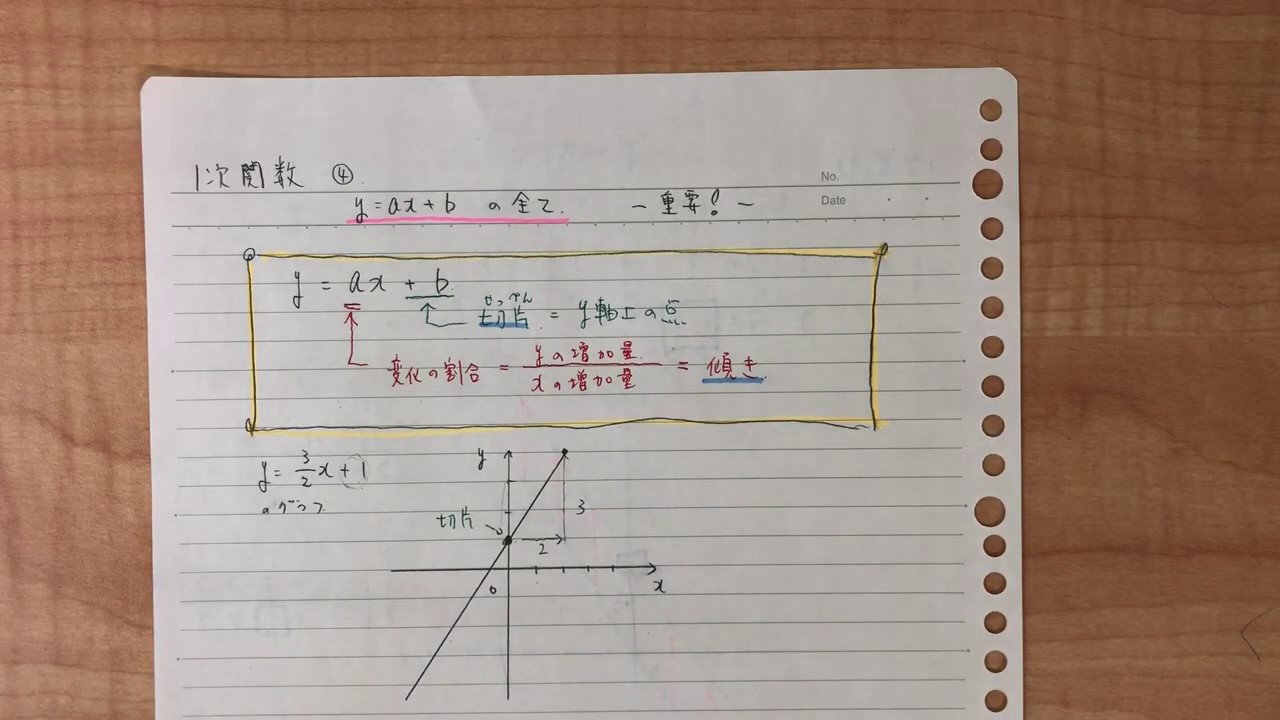 1次関数 ④
No.
y=ax+b の全て. ー重要!ー
Date
y = ax + b
せっぺん
切片 = y軸上の点
変化の割合 = yの増加量 / xの増加量 = 傾き
y = 3/2 x + 1
のグラフ
y
切片
3
2
0
x